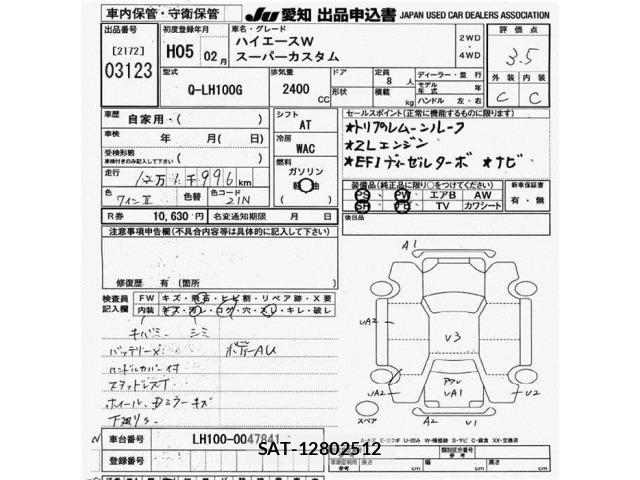 車内保管・守衛保管
JU 愛知 出品申込書 JAPAN USED CAR DEALERS ASSOCIATION
出品番号
[2172]
03123
初度登録年月
H05 02月
車名・グレード
ハイエースW
スーパーカスタム
2WD
・
4WD
評価点
3.5
型式
Q-LH100G
排気量
2400 CC
ドア
形状
定員
8 人
積載
kg
ディーラー・並行
モデル年式 年
ハンドル 左・右
外装 内装
C C
車歴
自家用・( )
車検
年 月( 日)
受検形態
車検付きのみ記入して下さい
( )
走行
996 km
色
ワインⅡ
色替
色コード
21N
シフト
AT
冷房
WAC
燃料
ガソリン
軽油
R券 10,630 円
名変通知期限 月 日
セールスポイント(正常に機能するものに限ります)
★トリプルムーンルーフ
★2Lエンジン
★EFIディーゼルターボ ★ナビ
装備品(純正品に限り○をつけてください)
PS PW エアB AW
SR TV カワシート
新車保証書
有・無
後日品
注意事項申告欄(不具合内容等は具体的に記入して下さい)
修復歴 有(箇所 )
検査員
記入欄
FW キズ・飛石・ヒビ割・リペア跡・X要
内装 キズ・汚レ・コゲ・穴・スレ・キレ・破レ
シミ
バッテリーX
ボデーAU
ハンドルカバー付
スタッドレスT
A1
UA2
UA2
V3
UA1
U2
A2
V1
スペア
A-キズ E-エクボ U-凹み W-補修跡 S-サビ C-腐食 XX-交換済
車台番号 LH100-0047841
登録番号
SAT-12802512
類別区分番号
参考
長さ cm 幅 cm 高さ cm